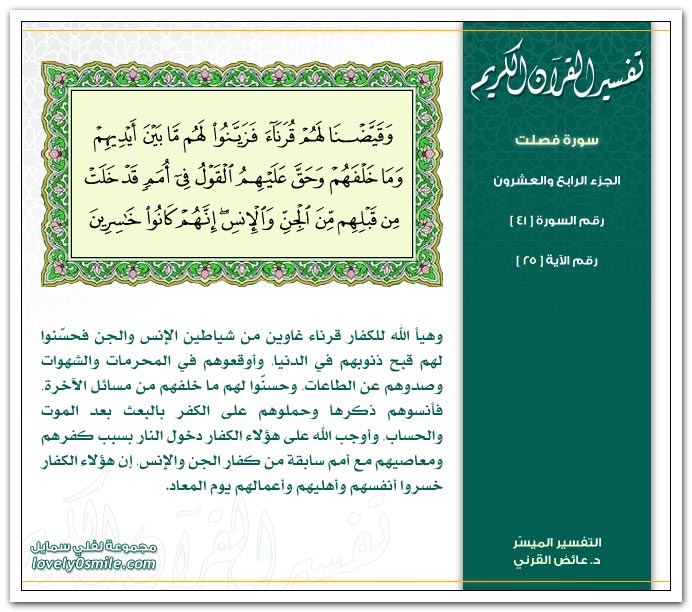 تفسير القرآن الكريم
سورة فصلت
الجزء الرابع والعشرون
رقم السورة [ ٤١ ]
رقم الآية [ ٢٥ ]
وَقَيَّضْنَا لَهُمْ قُرَنَآءَ فَزَيَّنُوا۟ لَهُم مَّا بَيْنَ أَيْدِيهِمْ
وَمَا خَلْفَهُمْ وَحَقَّ عَلَيْهِمُ ٱلْقَوْلُ فِىٓ أُمَمٍ قَدْ خَلَتْ
مِن قَبْلِهِم مِّنَ ٱلْجِنِّ وَٱلْإِنسِ ۖ إِنَّهُمْ كَانُوا۟ خَـٰسِرِينَ
وهيأ الله للكفار قرناء غاوين من شياطين الإنس والجن فحسّنوا
لهم قبح ذنوبهم في الدنيا، وأوقعوهم في المحرمات والشهوات
وصدوهم عن الطاعات، وحسنّوا لهم ما خلفهم من مسائل الآخرة،
فأنسوهم ذكرها وحملوهم على الكفر بالبعث بعد الموت
والحساب، وأوجب الله على هؤلاء الكفار دخول النار بسبب كفرهم
ومعاصيهم مع أمم سابقة من كفار الجن والإنس، إن هؤلاء الكفار
خسروا أنفسهم وأهليهم وأعمالهم يوم المعاد.
التفسير الميسّر
د. عائض القرني
مجموعة لفلي سمايل
lovely0smile.com
تفسير القرآن الكريم